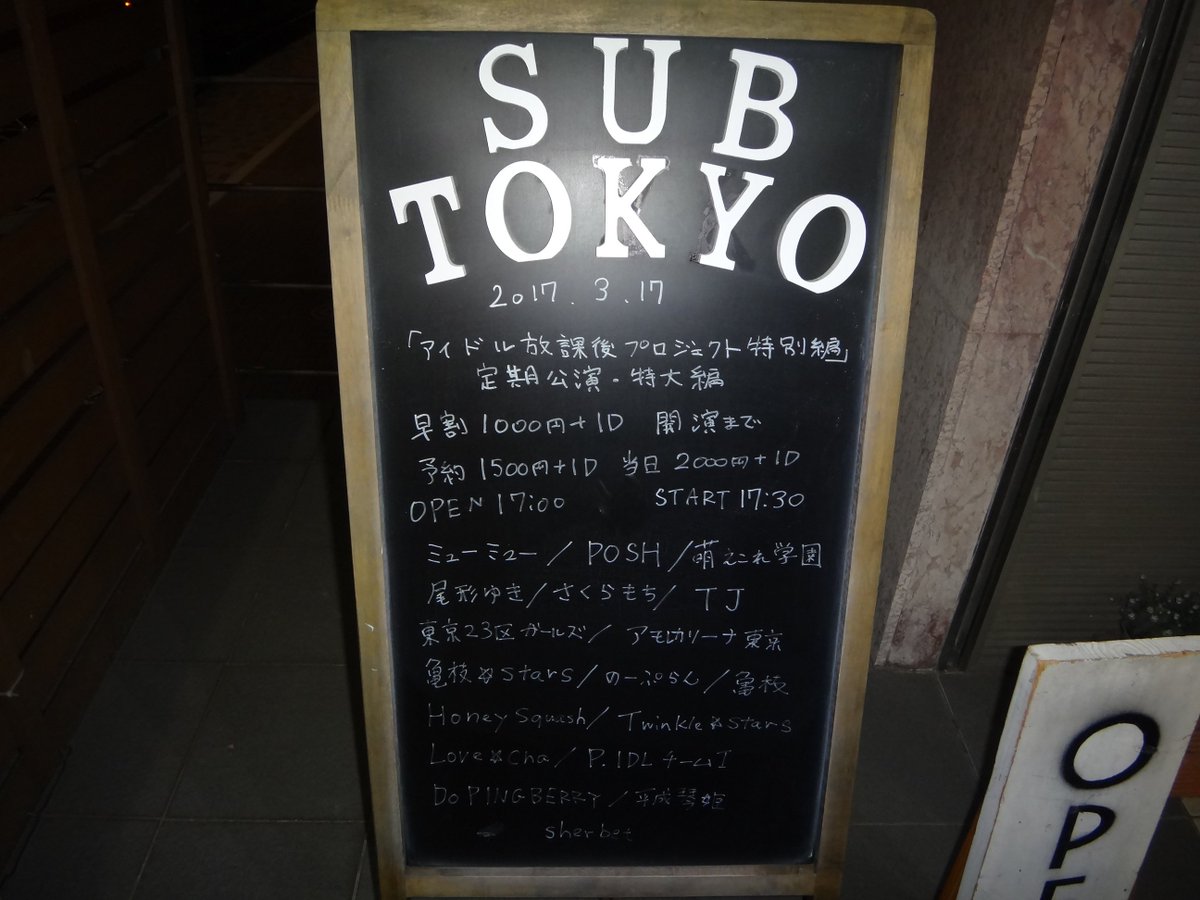 SUB
TOKYO
2017.3.17
「アイドル放課後プロジェクト特別編」
定期公演・特大編
早割1000円+1D 開演まで
予約1500円+1D 当日2000円+1D
OPEN 17:00 START 17:30
ミューミュー/POSH/萌えこれ学園
尾形ゆき/さくらもち/TJ
東京23区ガールズ/アモレカリーナ東京
亀枝☆stars/のーぷらん/亀枝
Honey Squash/Twinkle☆stars
Love☆cha/P.IDLチームI
DoPINGBERRY/平成琴姫
sherbet
OPE